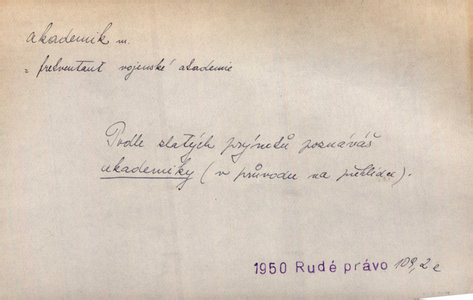 akademik m.
= frekventant vojenské akademie
Podle zlatých prýmků poznáváš
akademiky (v průvodu na přehlídce).
1950 Rudé právo 109, 2 c